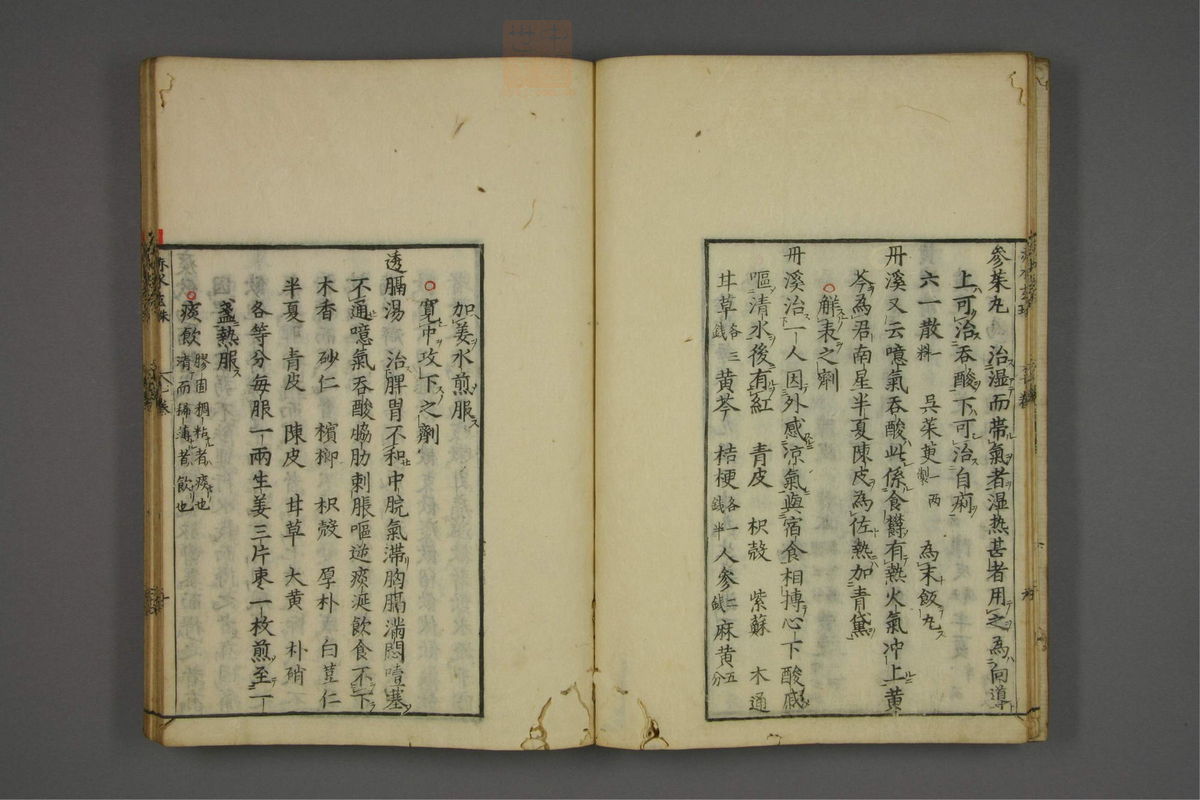 參茱丸 治湿而帶氣者湿热甚者用之為向導
上可治吞酸下可治自痢
六一散一料 呉茱萸一两製 為末飯丸
丹溪又云噫氣吞酸此係食欝有熱火氣冲上黄
芩為君南星半夏陳皮為佐熱加青黛
解表之劑
丹溪治一人因外感涼氣與宿食相搏心下酸戚
嘔清水後有紅 青皮 枳殻 紫蘇 木通
甘草各三錢 黄芩 桔梗各一錢半 人参二錢 麻黄五分
加姜水煎服
寛中攻下之劑
透膈湯 治脾胃不和中脘氣滞胸膈滿悶噎塞
不通噫氣吞酸脇肋刺脹嘔逆痰涎飲食不下
木香 砂仁 檳榔 枳殻 厚朴 白荳仁
半夏 青皮 陳皮 甘草 大黄 朴硝
各等分每服一兩生姜三片枣一枚煎至一
盞熱服
痰飲膠固稠粘者痰也清而稀薄者飲也